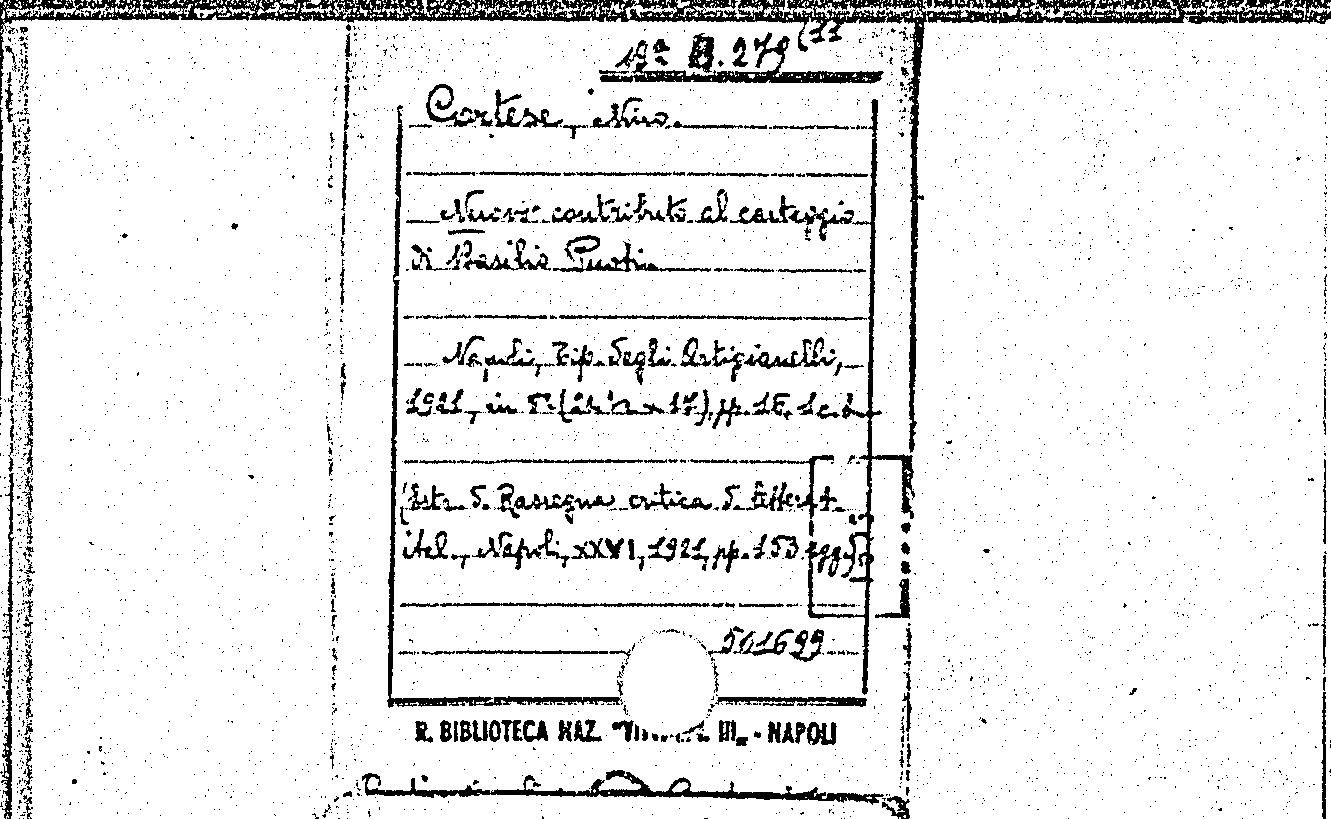 19ª B. 279 (11
Cortese, Nino.
Nuovo contributo al carteggio
di Basilio Puoti.
Napoli, Tip. degli Artigianelli,
1921, in 8° x 17), pp. 16. 1 c. b.
(Estr. d. Rassegna critica d. letterat.
ital., Napoli, XXVI, 1921, pp. 153 sgg.)
501699
R. BIBLIOTECA NAZ. III„ - NAPOLI